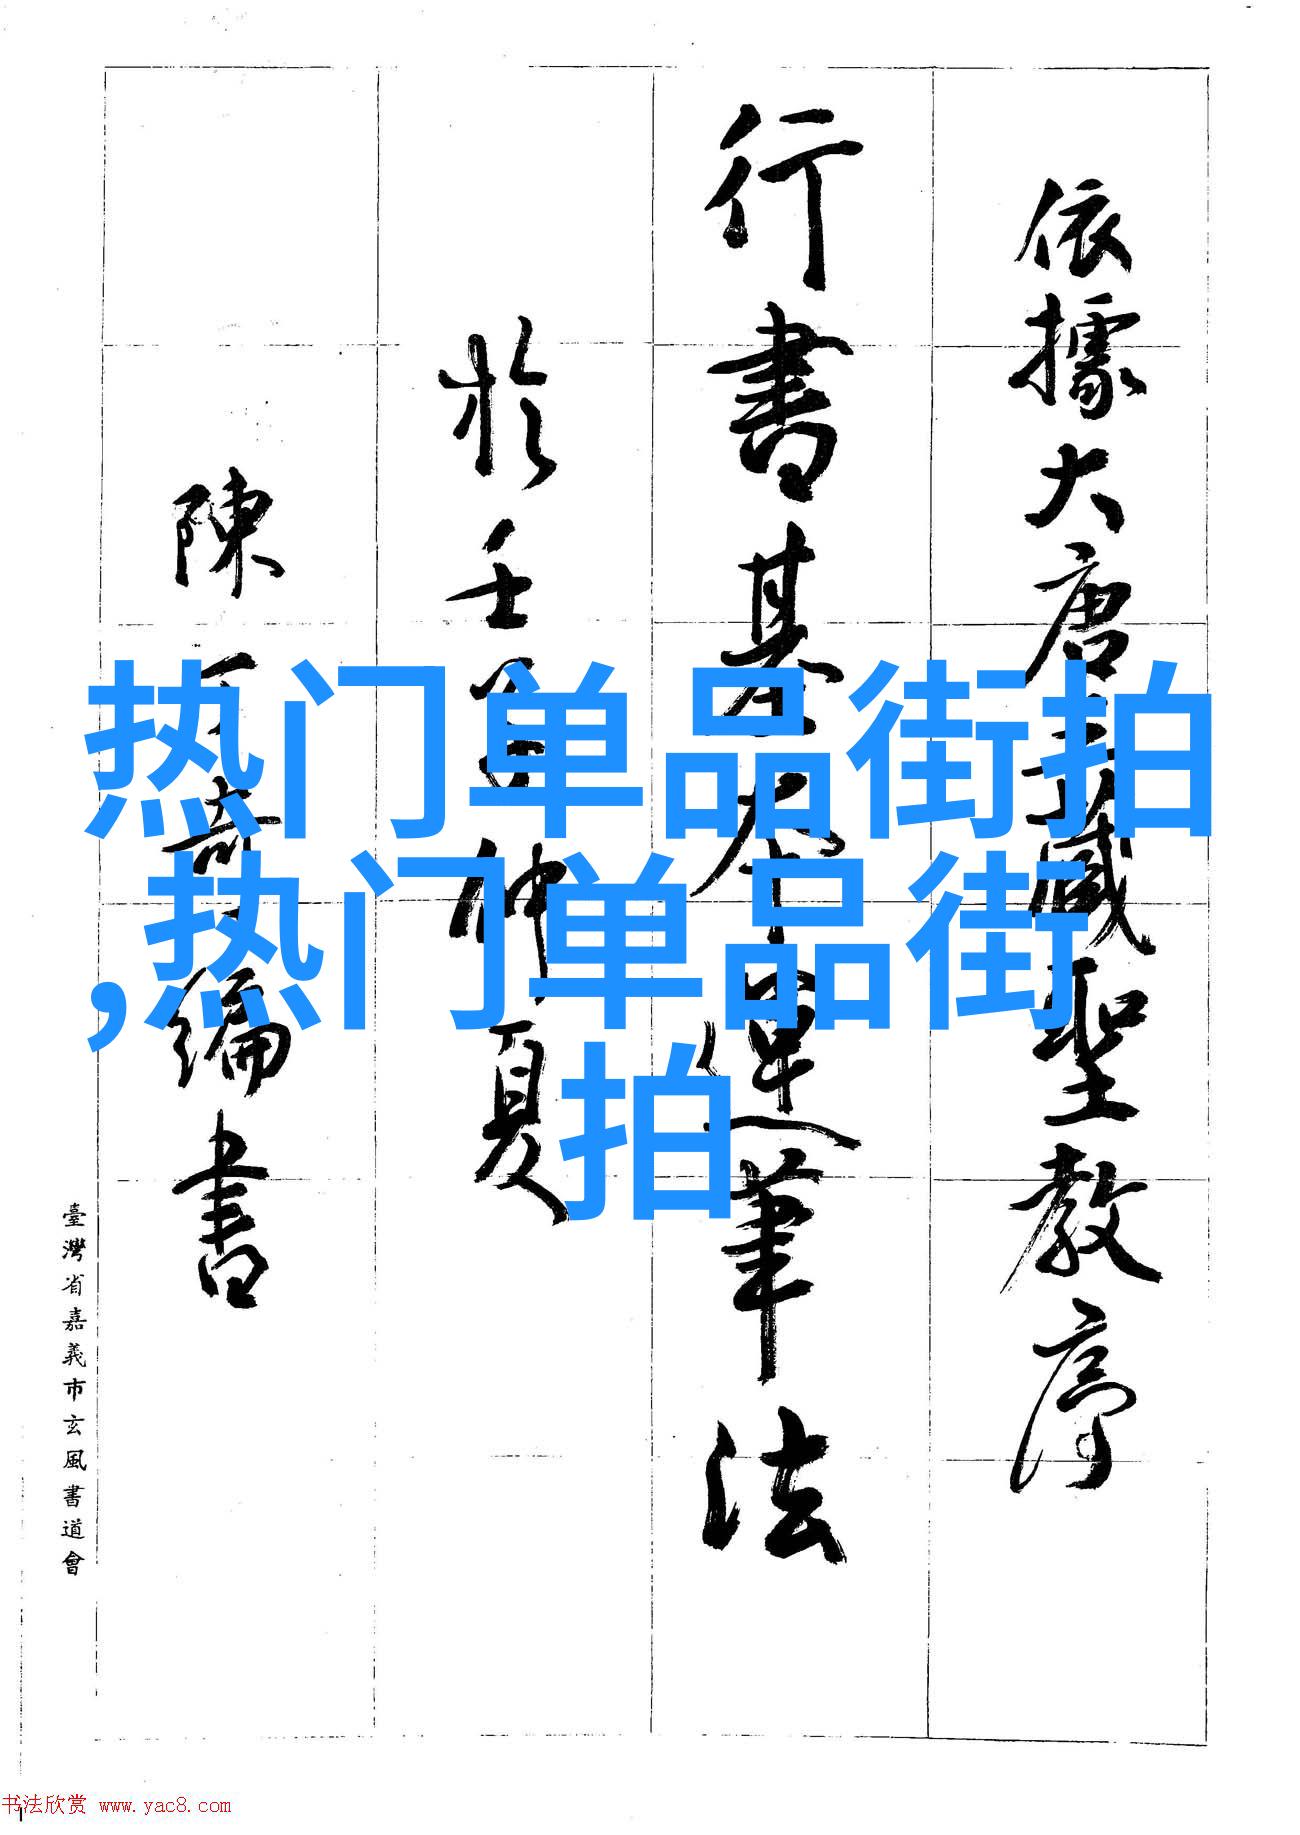 依據大唐三藏聖教序
行書基本運筆法
於壬子仲夏
陳丁奇編書
臺灣省嘉義市玄風書道會
热门单品街拍
,热门单品街
拍
书法欣赏 www.yac8.com
1